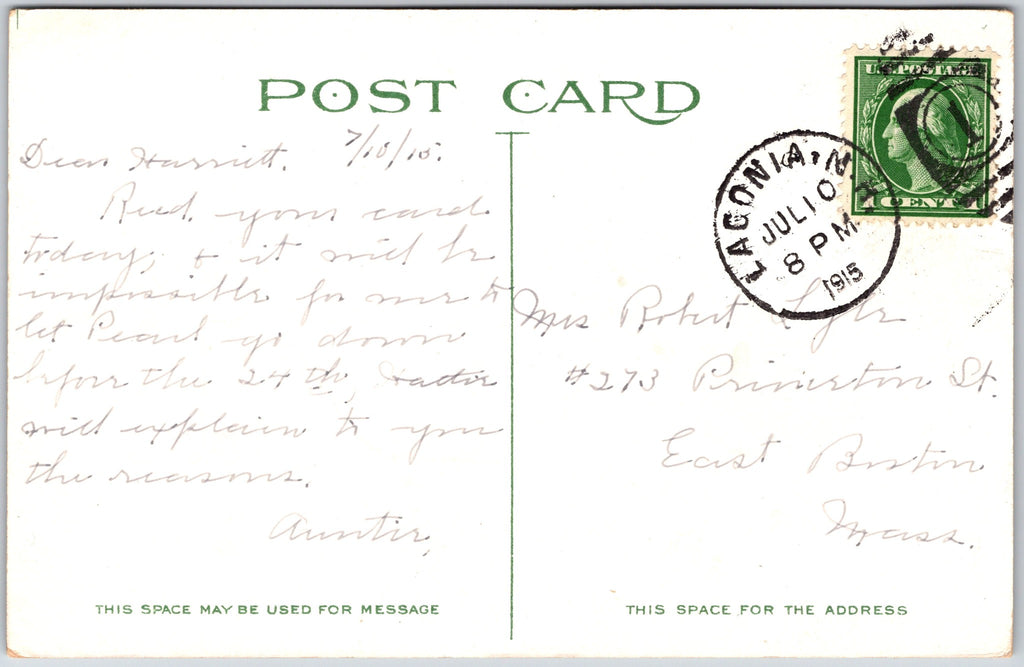 POST CARD
7/10/15.
Dear Harriett.
Recd. your card
today, & it will be
impossible for me to
let Pearl go down
before the 24th, Hattie
will explain to you
the reasons.
Auntie,
THIS SPACE MAY BE USED FOR MESSAGE
U.S. POSTAGE
1 CENT 1
LACONIA, N.H.
JUL 10
8 PM
1915
1
Mrs Robert Lyle
#273 Princeton St.
East Boston
Mass.
THIS SPACE FOR THE ADDRESS